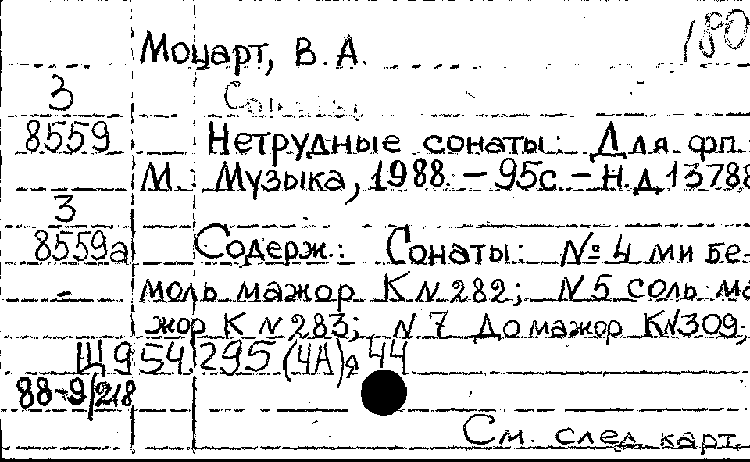 180
Моцарт, В. А.
3 Сонаты
8559 Нетрудные сонаты: Для фп.
М.: Музыка, 1988. – 95с. – Н.д. 13788
3
8559а Содерж.: Сонаты: № 4 ми бе-
- моль мажор К № 282; № 5 соль ма
жор К № 283; № 7 До мажор К№309;
Щ 954.295 (4А)я 44
88-9/218
См. след. карт.